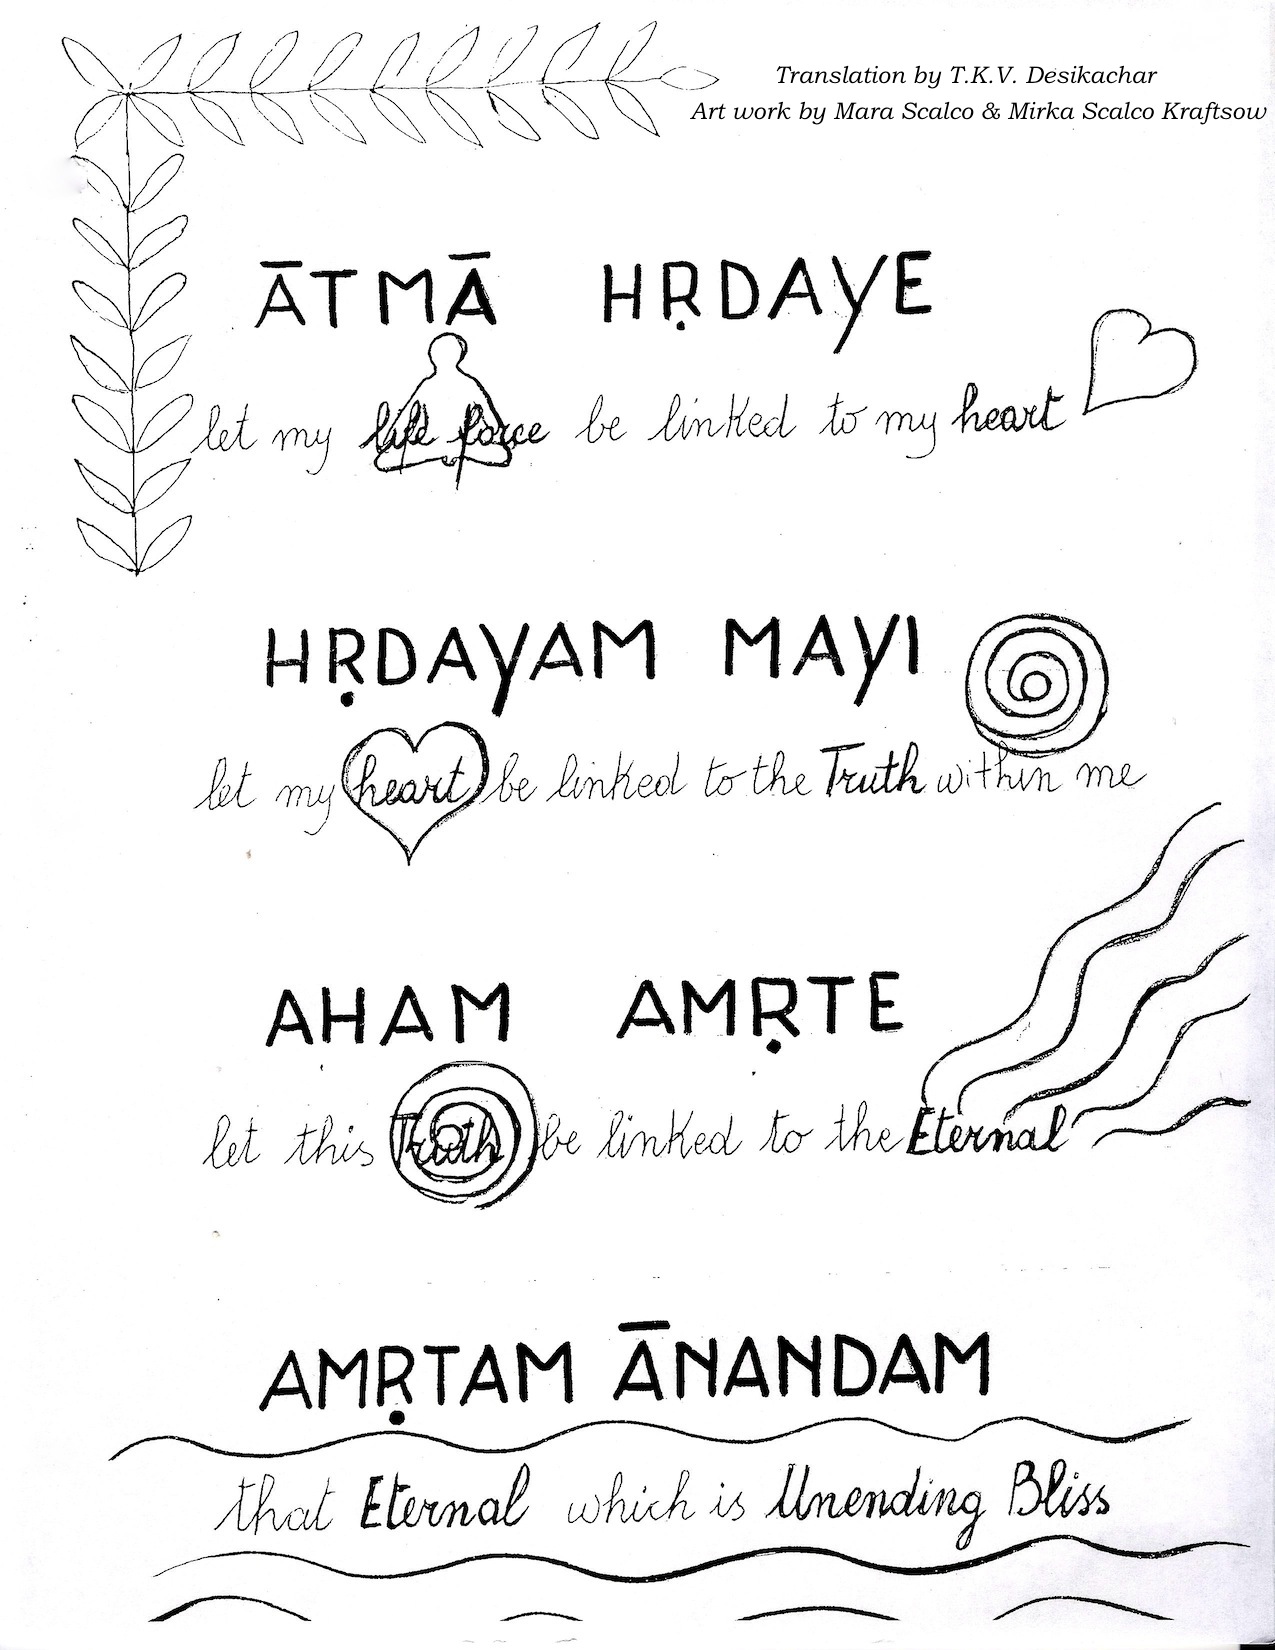 Translation by T.K.V. Desikachar
Art work by Mara Scalco & Mirka Scalco Kraftsow
ĀTMĀ HṚDAYE
let my life force be linked to my heart
HṚDAYAM MAYI
let my heart be linked to the Truth within me
AHAM AMṚTE
let this Truth be linked to the Eternal
AMṚTAM ĀNANDAM
that Eternal which is Unending Bliss